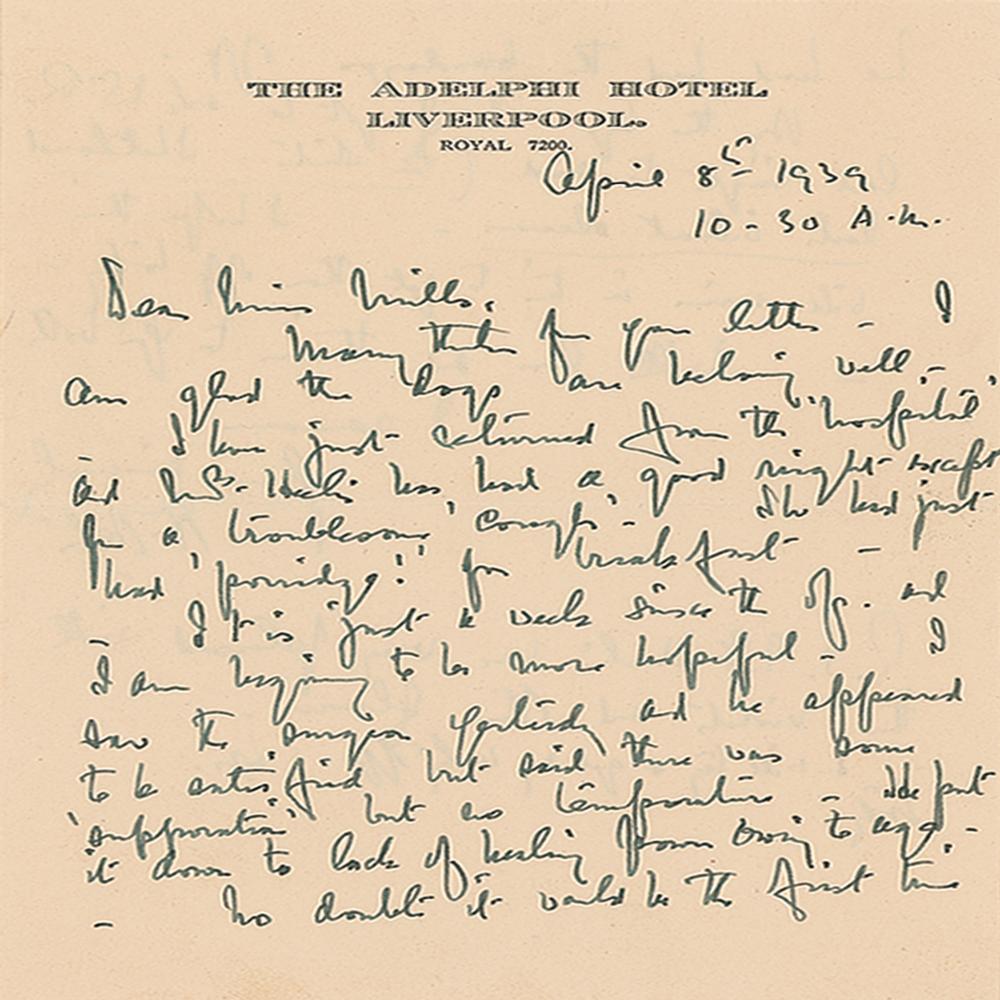 THE ADELPHI HOTEL
LIVERPOOL.
ROYAL 7200.
April 8th 1939
10-30 A.M.
Dear Miss Mills,
Many thanks for your letter - I
am glad the dogs are keeping well. -
I have just returned from the 'hospital'
- and Mrs. has had a good night except
for a troublesome 'cough' - She had just
had 'porridge!' for breakfast -
- It is just a week since the op. and
I am begining to be more hopeful - I
saw the surgeon yesterday and he appeared
to be satisfied but said there was some
'suppuration' but no temperature - He put
it down to lack of healing power owing to age. -
- No doubt it would be the first time